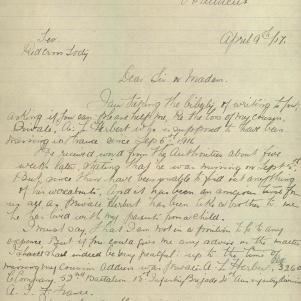 April 9th/17.
Dear Sir or Madam
I am taking the liberty of writing to you,
asking if you can please help me, re the loss of my cousin,
Private, A. L. Herbert who is supposed to have been
missing in France since Sep 5th 1916
We received word from the Authorities about five
weeks later, stating that he was missing on Sept 5th
But since then have been unable to find out anything
of his whereabouts, And it has been an anxious time for
us all as Private Herbert has been like a brother to me
he has lived with my parents from a child.
I must say that I am not in a position to go to any
expense But if you could give me any advice on the matter
I should indeed be very grateful: up to the time of
missing my Cousins Address was Private A. L. Herbert, 3260
Company 52nd Battalion 13th Infantry Brigade
A. I. F. France.